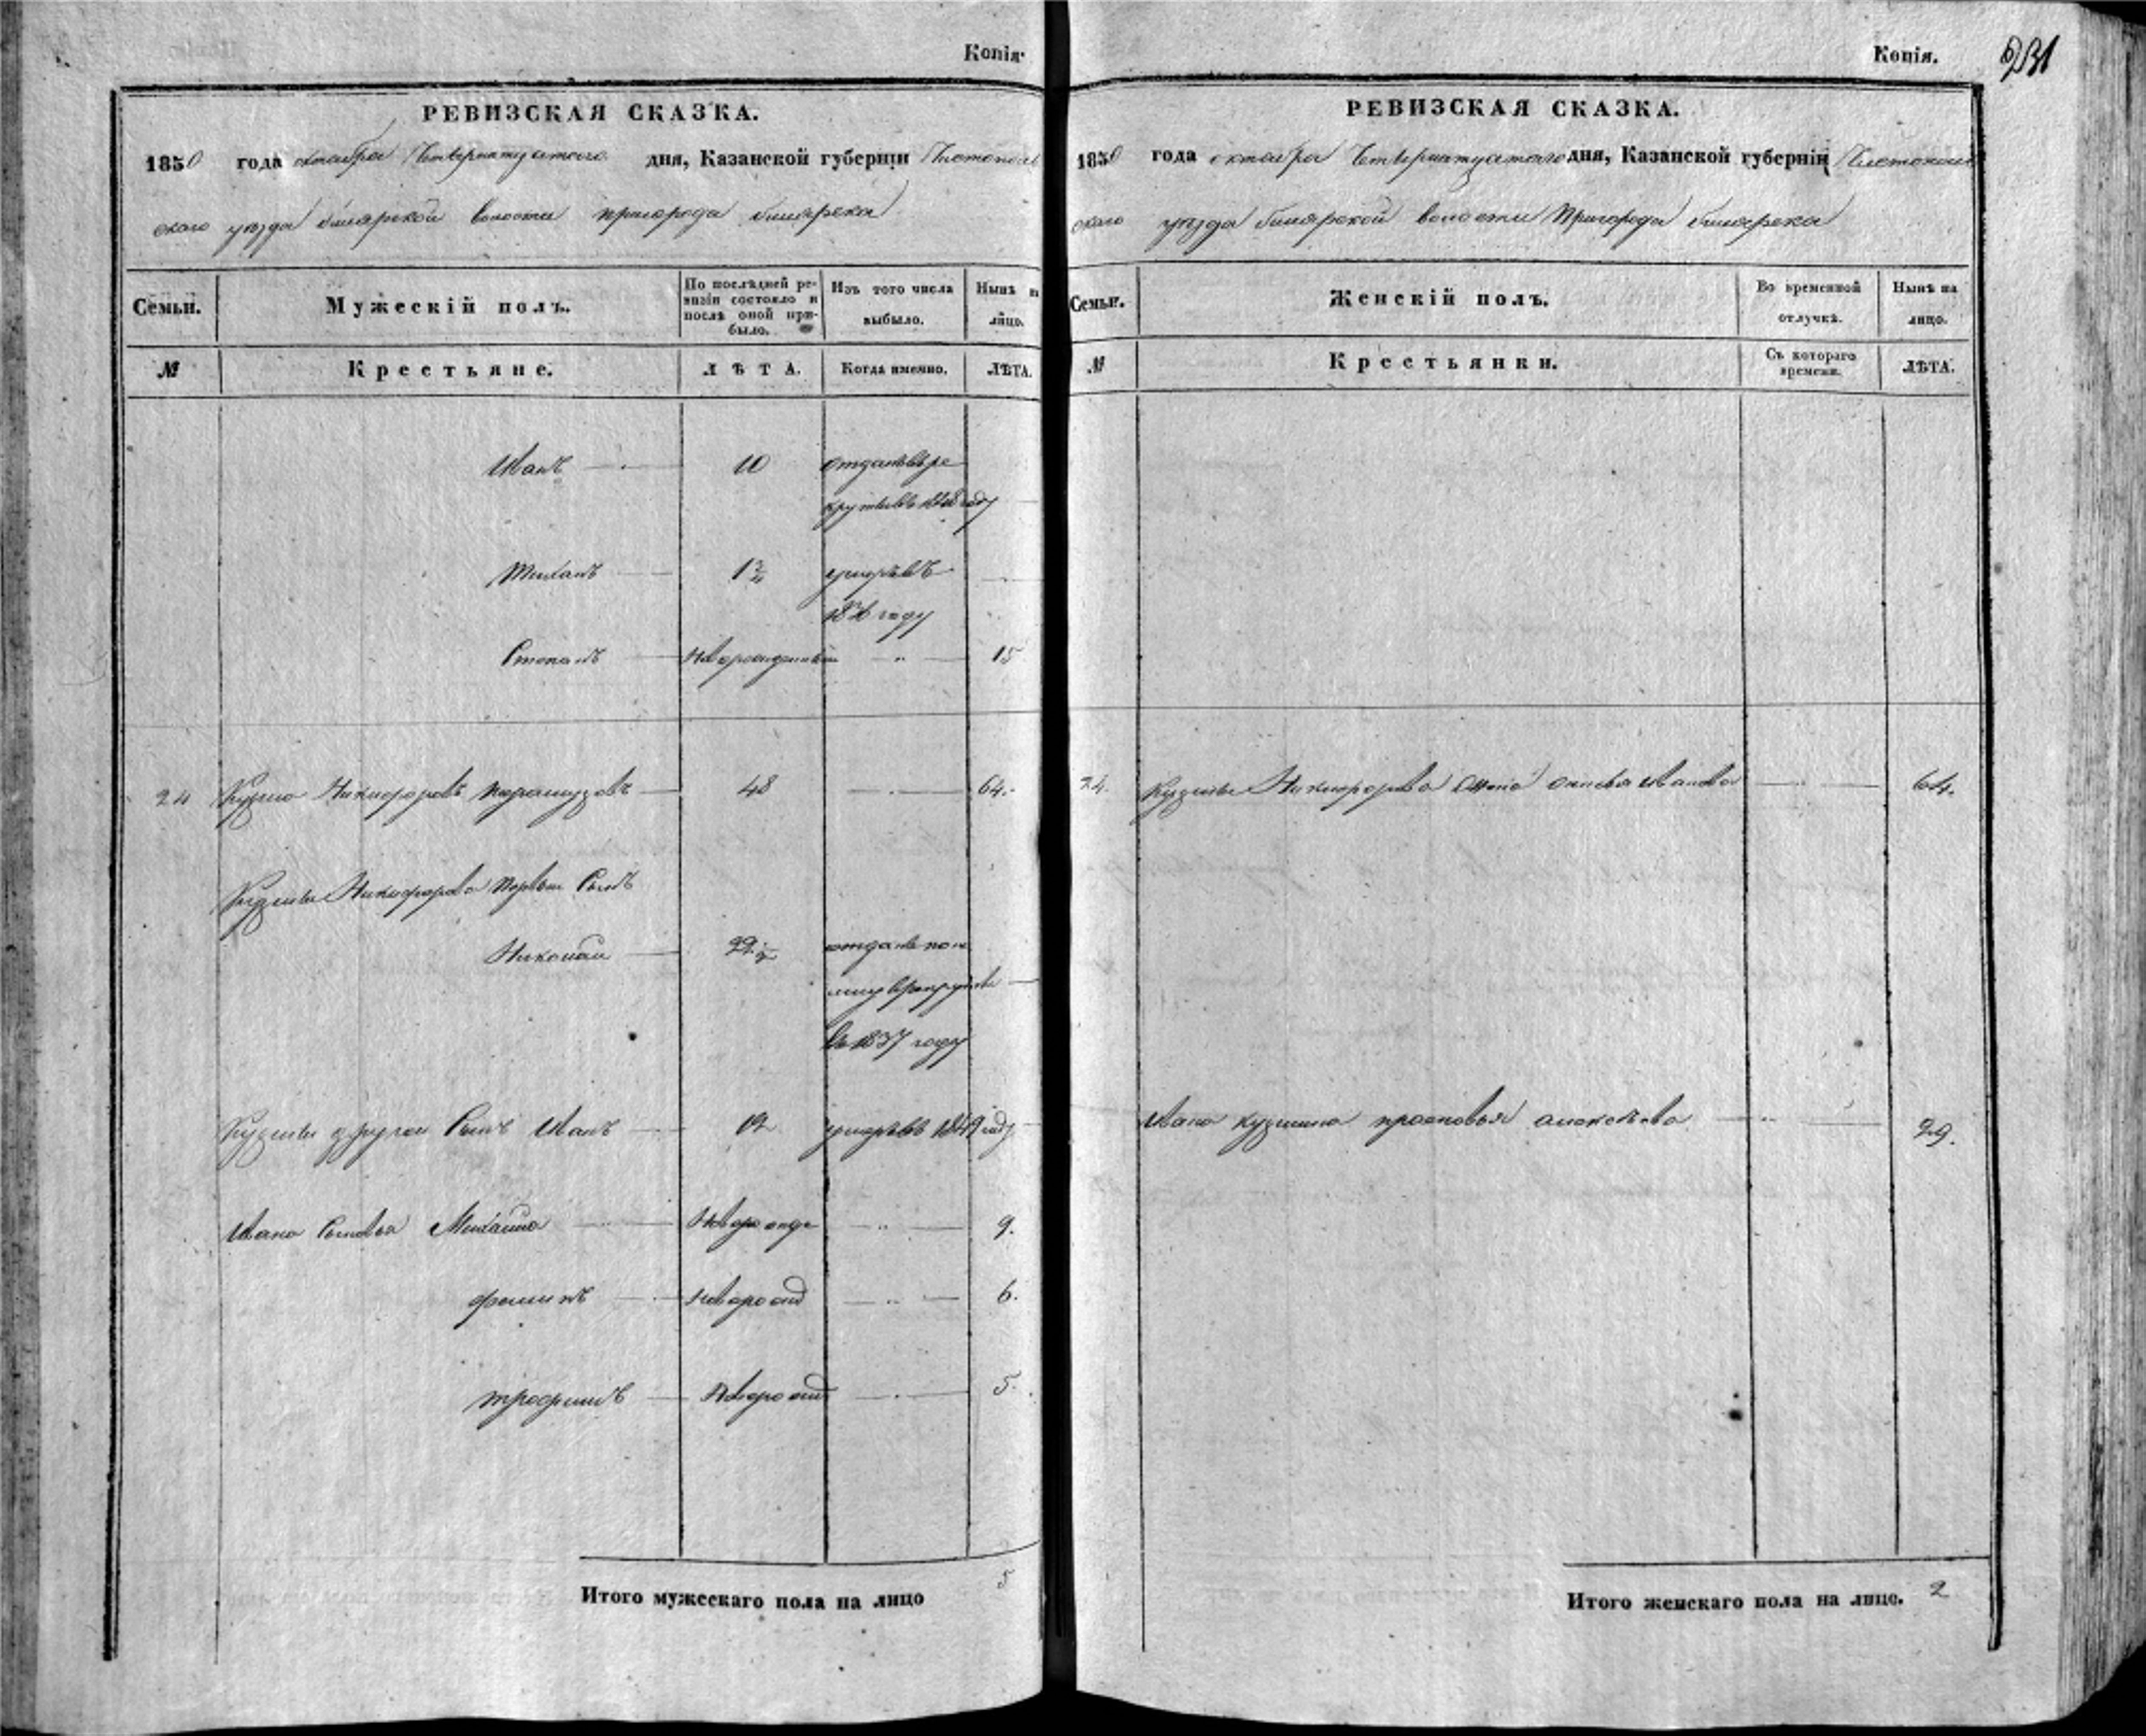 Копія.
РЕВИЗСКАЯ СКАЗКА.
1850 года октября Четвертцатого дня, Казанской губерніи Чистополь
скаго уезда билярской волости пригорода билярска
Семьи. Мужескій полъ. По послѣдней ревизіи состояло и послѣ оной прибыло. Изъ того числа выбыло. Нынѣ на лицо.
№ Крестьяне. ЛѢТА. Когда именно. ЛѢТА.
Иванъ 10 отданъ въ ре
круты въ году
умръ въ
1836 году
Степанъ Новорожденный 15
24 Кузма Никифоровъ 48 64.
Кузмы Никифорова первый Сынъ
Николай 22 1/2 отданъ
в 1837 году
Кузмы другой Сынъ Иванъ 12 умръ въ 1849 году
Ивана Сыновья Михайла Новорожде 9.
фоминъ Неворожд 6.
трофимъ Неворожд 5.
Итого мужескаго пола на лицо 5
Копія. 231
РЕВИЗСКАЯ СКАЗКА.
1850 года октября Четвертцатого дня, Казанской губерніи Чистополь
скаго уезда билярской волости Пригорода билярска
Семьи. Женскій полъ. Во временной отлучкѣ. Нынѣ на лицо.
№ Крестьянки. Съ котораго времени. ЛѢТА.
24. Кузмы Никифорова жена Иванова 64.
Ивана кузмина просковья алексѣева 29.
Итого женскаго пола на лицо. 2